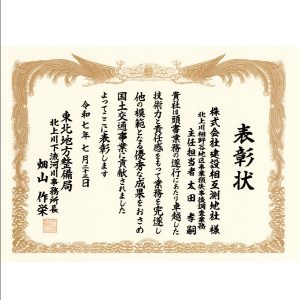 表彰状
株式会社建設相互測地社 様
北上川細野谷地区事業損失事後調査業務
主任担当者 太田 孝嗣
貴社は頭書業務の遂行にあたり卓越した
技術力と責任感をもって業務を完遂し
他の模範となる優秀な成果をおさめ
国土交通事業に貢献されました
よってここに表彰します
令和七年七月二十三日
東北地方整備局
北上川下流河川事務所長
畑山 作栄